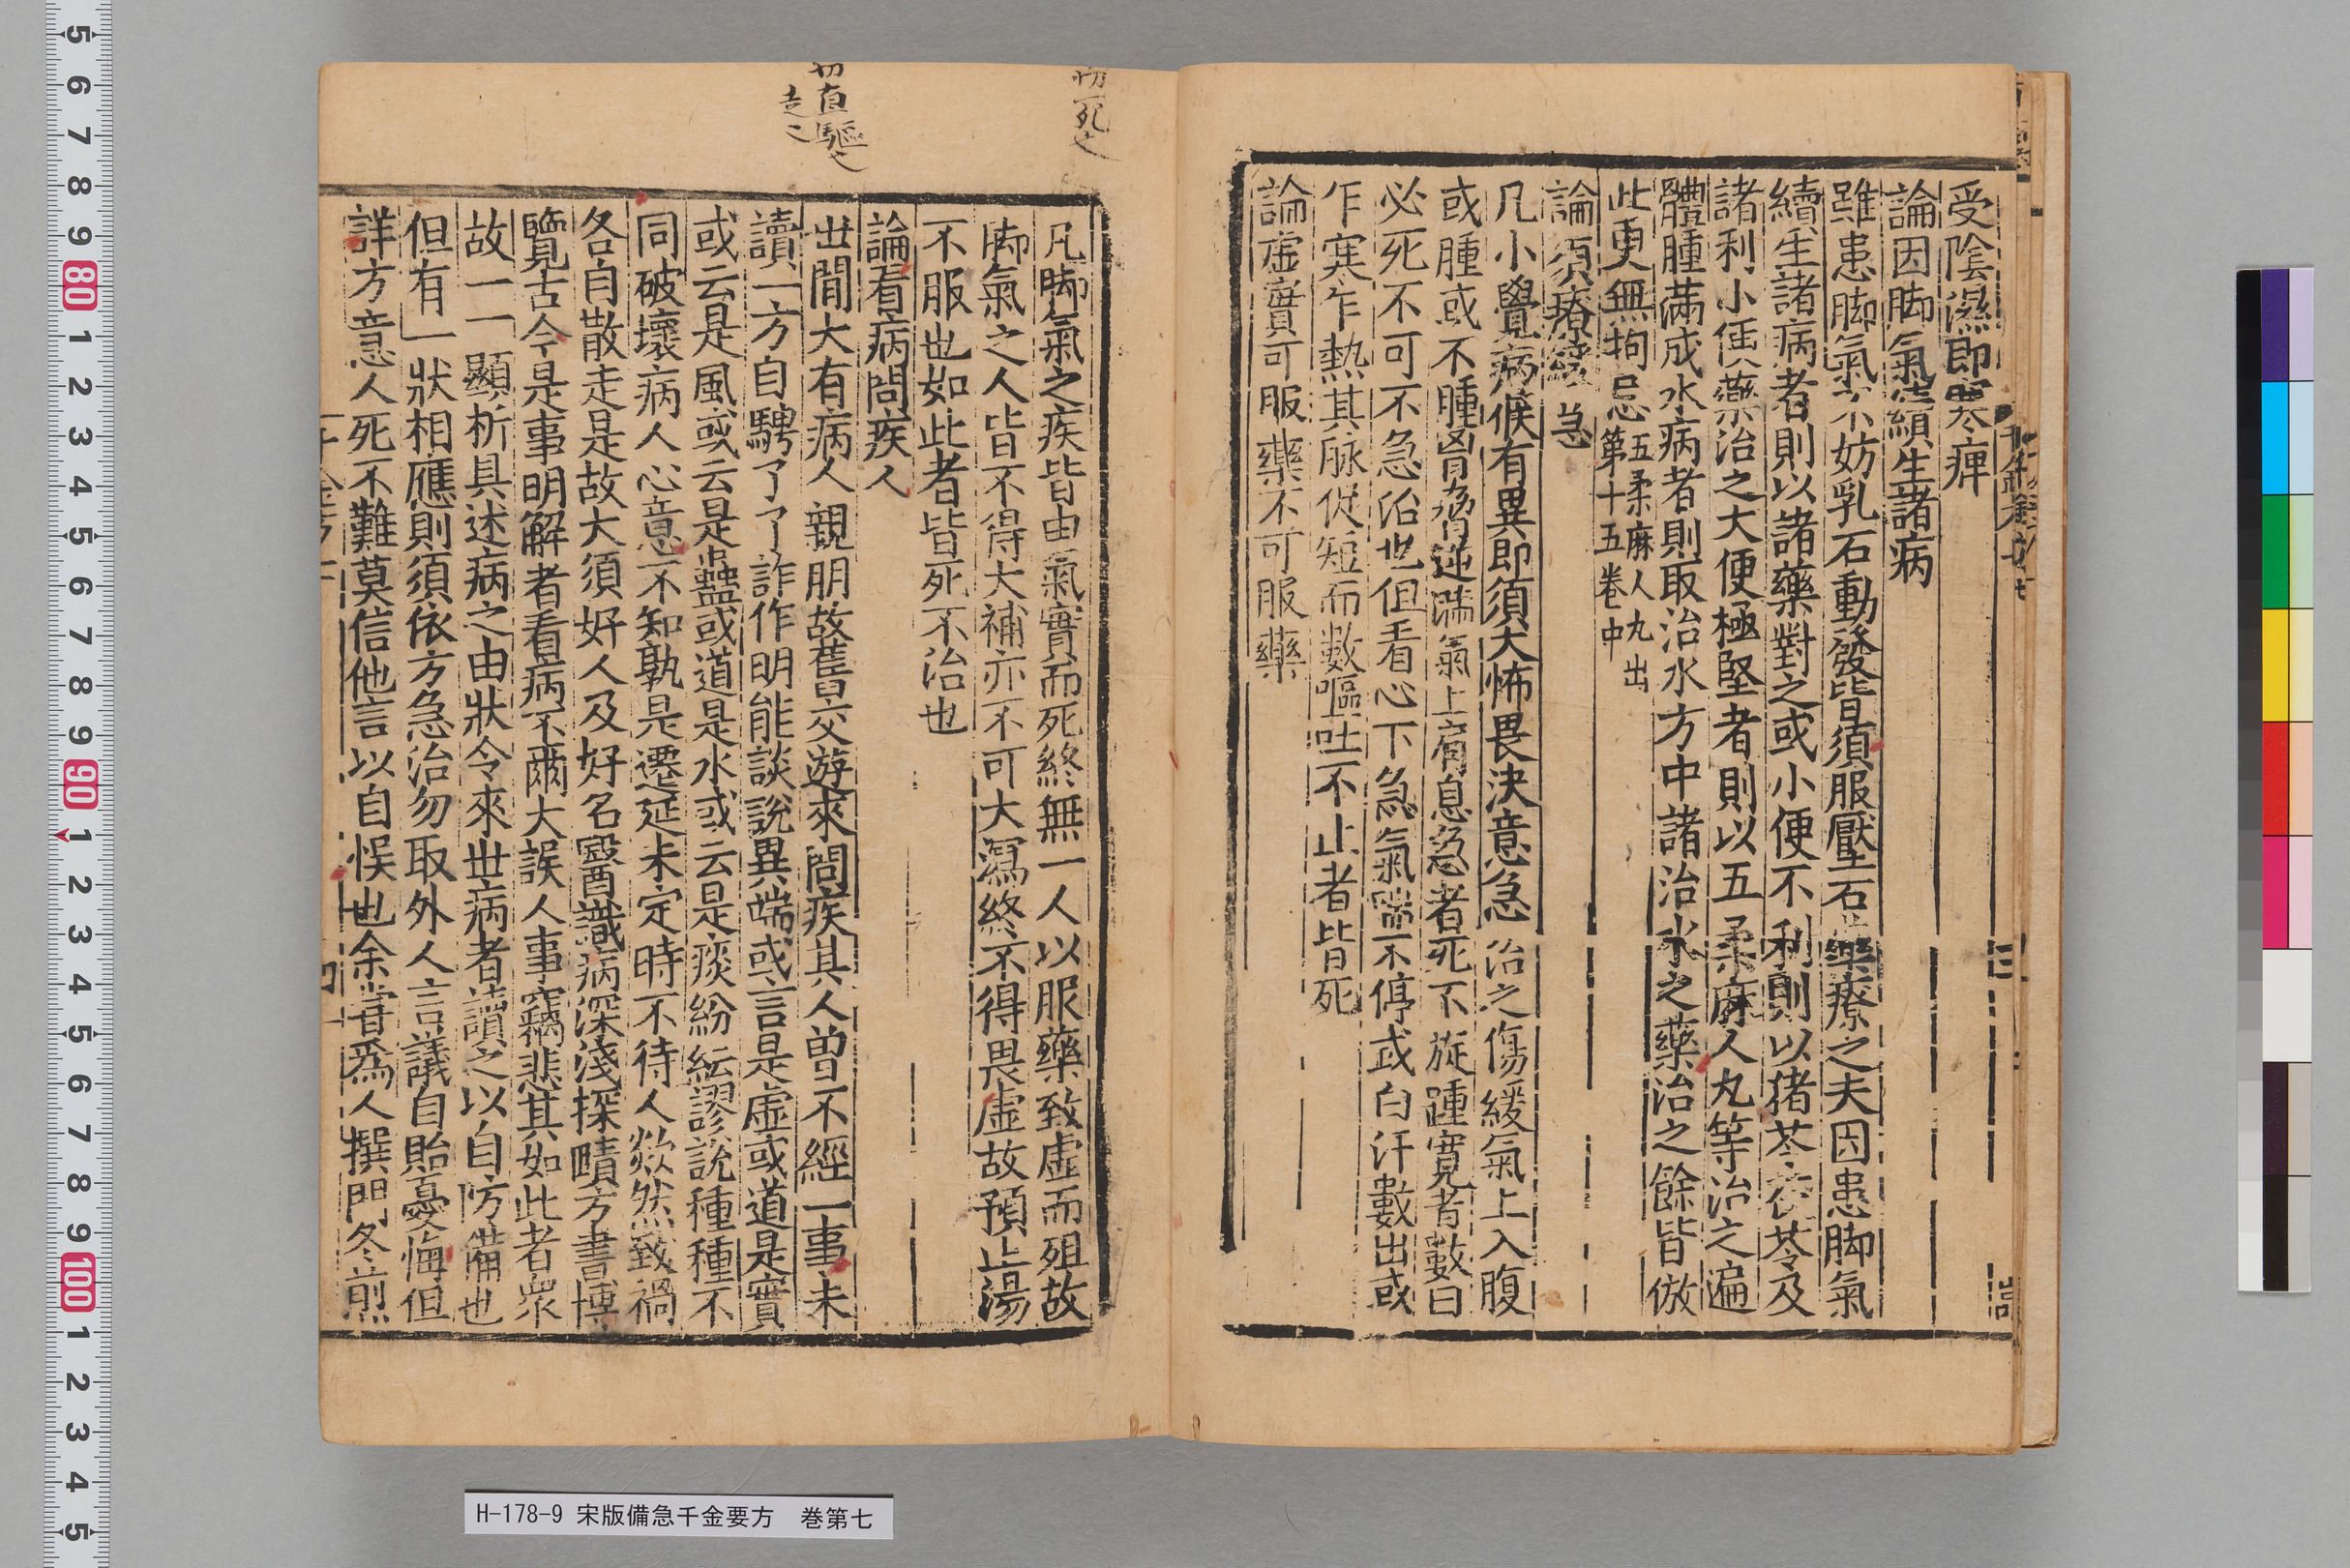 受陰濕即寒痺
論因脚氣續生諸病
雖患脚氣不妨乳石動發皆須服壓石藥療之夫因患脚氣
續生諸病者則以諸藥對之或小便不利則以猪苓茯苓及
諸利小便藥治之大便極堅者則以五柔麻人丸等治之遍
體腫滿成水病者則取治水方中諸治水之藥治之餘皆倣
此更無拘忌五柔麻人丸出第十五卷中
論須療緩急
凡小覺病候有異即須大怖畏決意急治之傷緩氣上入腹
或腫或不腫胷脅逆滿氣上肩息急者死不旋踵寬者數日
必死不可不急治也但看心下急氣喘不停或白汗數出或
乍寒乍熱其脉促短而數嘔吐不止者皆死
論虛實可服藥不可服藥
凡脚氣之疾皆由氣實而死終無一人以服藥致虛而殂故
脚氣之人皆不得大補亦不可大瀉終不得畏虛故預止湯
不服也如此者皆死不治也
論看病問疾人
世間大有病人親朋故舊交遊來問疾其人曾不經一事未
讀一方自騁了了詐作明能談說異端或言是虛或道是實
或云是風或云是蠱或道是水或云是痰紛紜謬說種種不
同破壞病人心意不知孰是遷延未定時不待人欻然致禍
各自散走是故大須好人及好名醫識病深淺探賾方書博
覽古今是事明解者看病不爾大誤人事竊悲其如此者衆
故一一顯析具述病之由狀令來世病者讀之以自防備也
但有一狀相應則須依方急治勿取外人言議自貽憂悔但
詳方意人死不難莫信他言以自悮也余嘗爲人撰門冬煎
H-178-9 宋版備急千金要方 巻第七